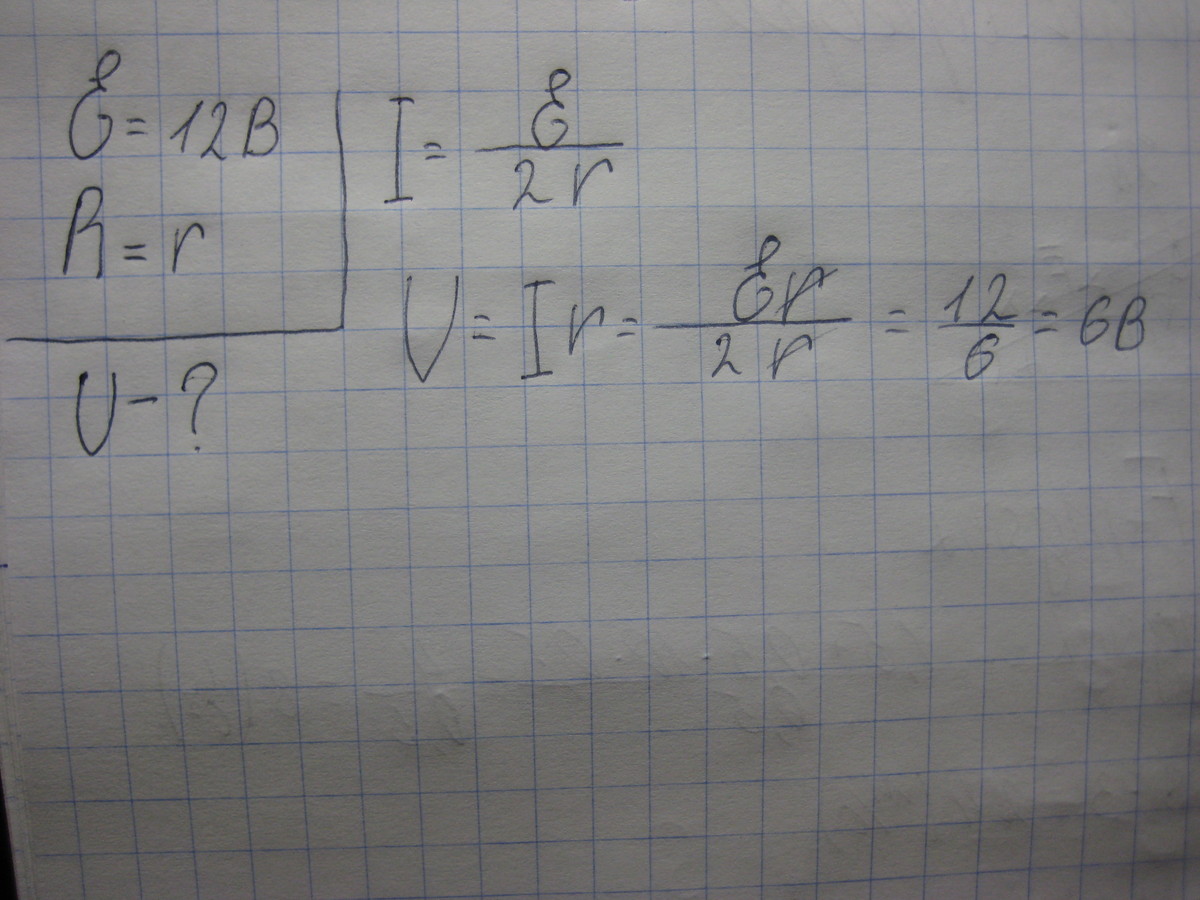 ℰ = 12В
R = r
U - ?
I = ℰ / 2r
U = Ir = ℰr / 2r = 12 / 6 = 6В